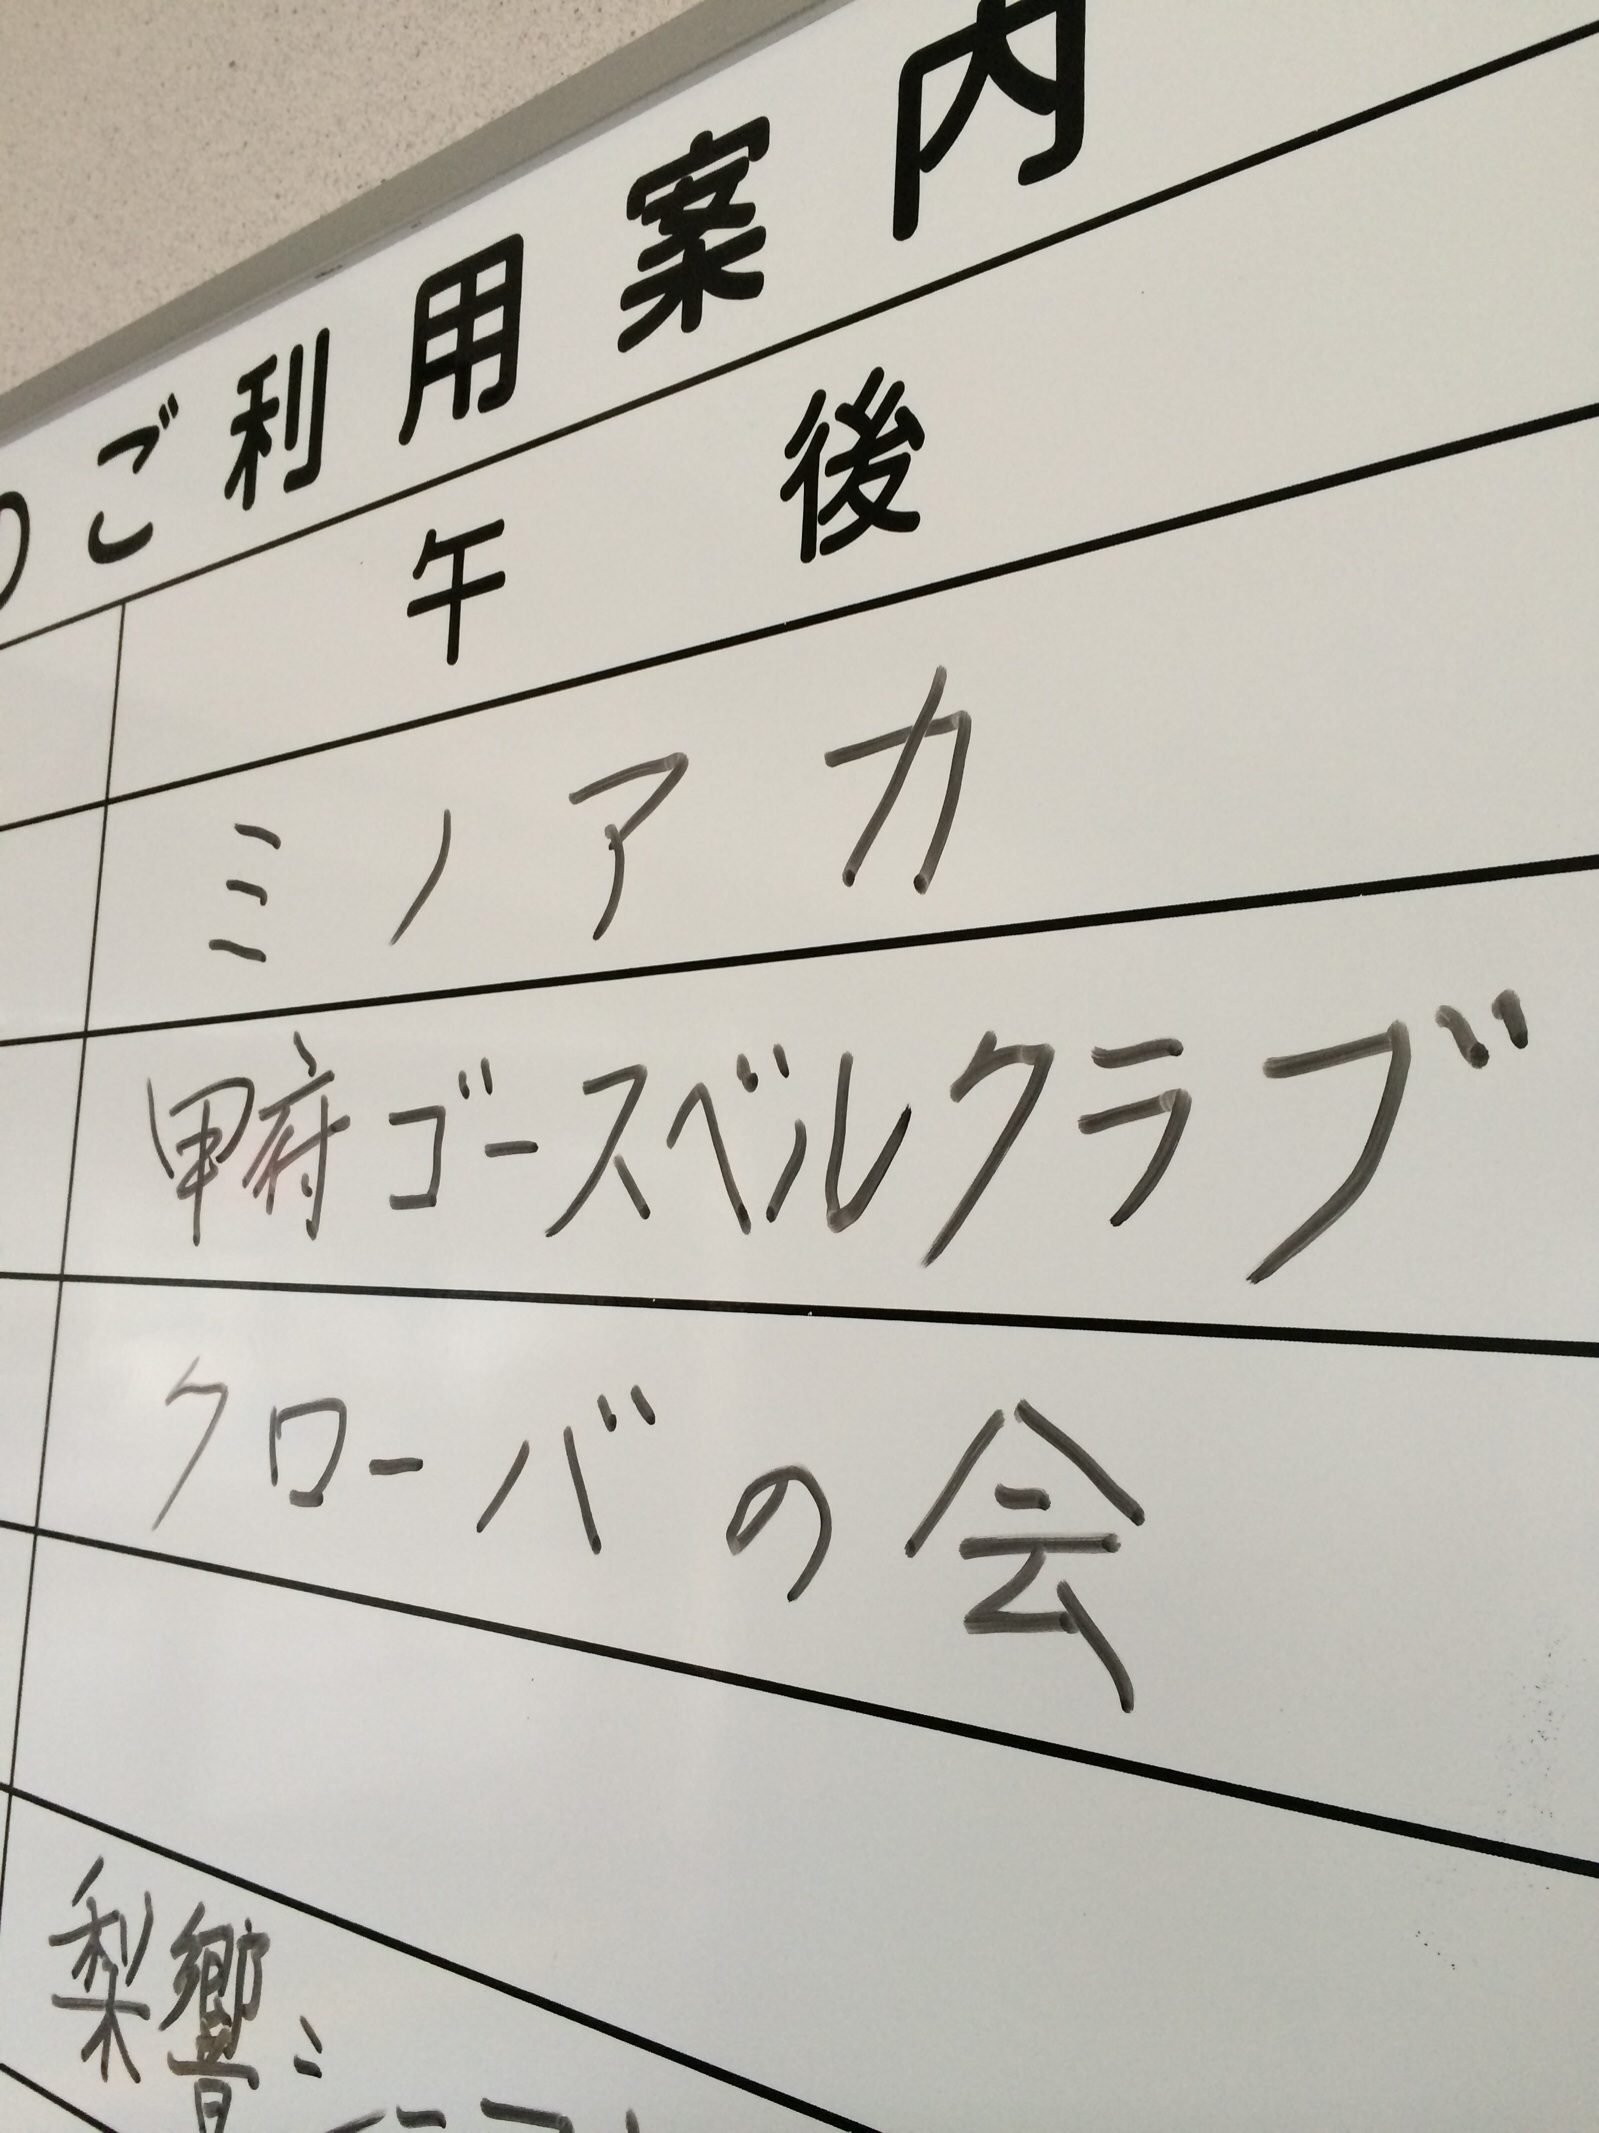 のご利用案内
午後
ミノアカ
甲府ゴースペルクラブ
クローバの会
梨響